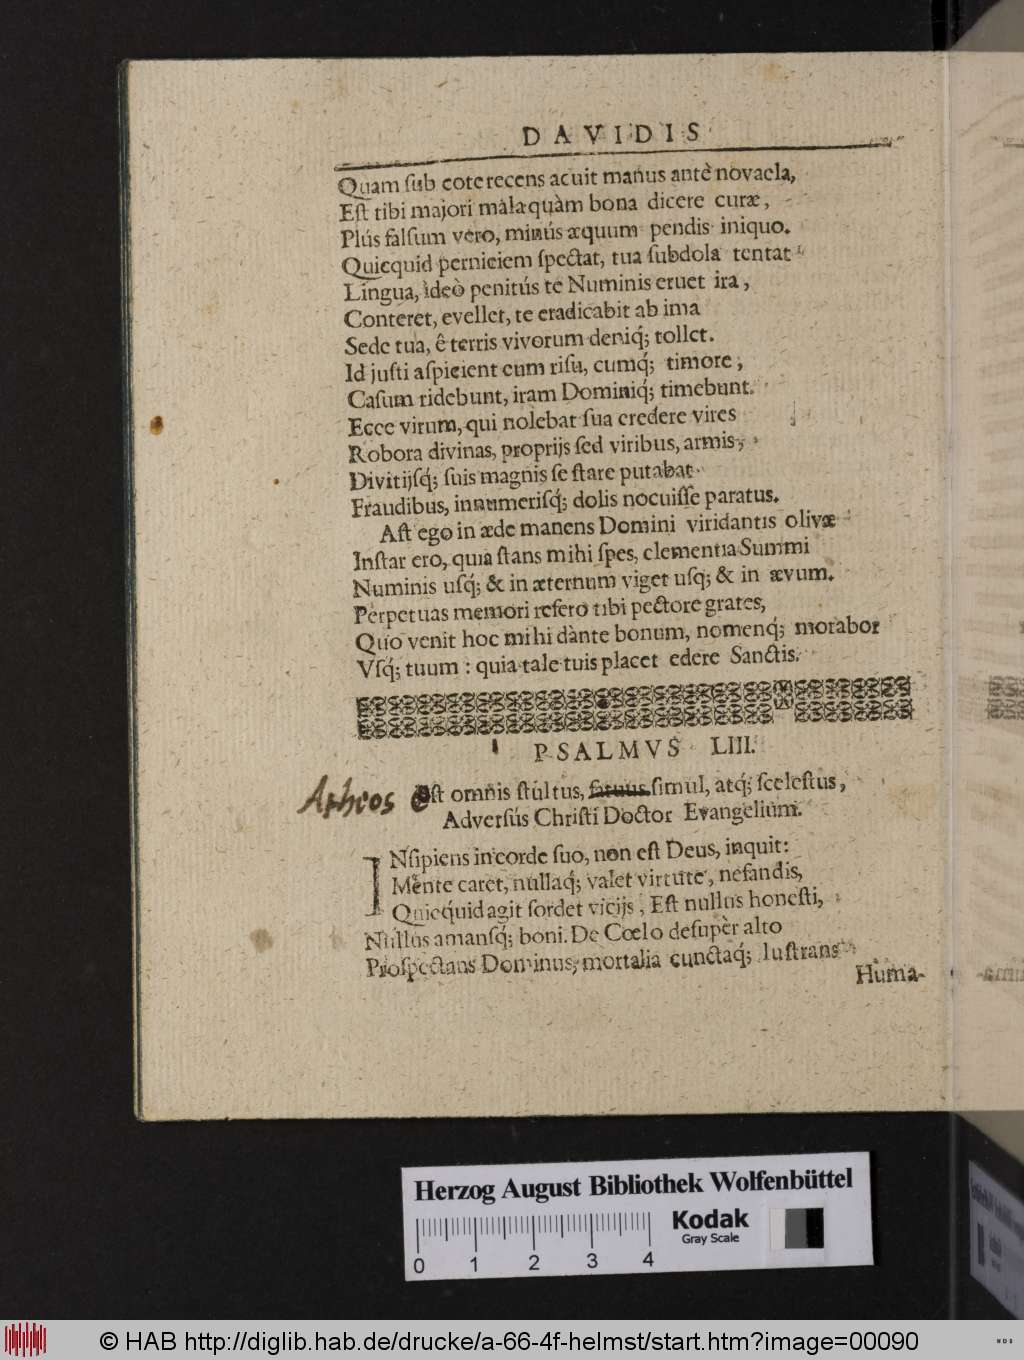 DAVIDIS
Quam ſub cote recens acuit manus antè novacla,
Eſt tibi majori mala quàm bona dicere curæ,
Plús falſum vero, minús æquum pendis iniquo.
Quicquid perniciem ſpectat, tua ſubdola tentat
Lingua, ideò penitús te Numinis eruet ira,
Conteret, evellet, te eradicabit ab ima
Sede tua, ê terris vivorum deniq́; tollet.
Id juſti aſpicient cum riſu, cumq́; timore,
Caſum ridebunt, iram Dominiq́; timebunt.
Ecce virum, qui nolebat ſua credere vires
Robora divinas, proprijs ſed viribus, armis,
Divitijſq́; ſuis magnis ſe ſtare putabat
Fraudibus, innumeriſq́; dolis nocuiſſe paratus.
Aſt ego in æde manens Domini viridantis olivæ
Inſtar ero, quia ſtans mihi ſpes, clementia Summi
Numinis uſq́; & in æternum viget uſq; & in ævum.
Perpetuas memori refero tibi pectore grates,
Quo venit hoc mihi dante bonum, nomenq́; morabor
Vſq́; tuum : quia tale tuis placet edere Sanctis.
PSALMVS LIII.
Atheos eſt omnis ſtultus, fatuus ſimul, atq́; ſceleſtus,
Adverſús Chriſti Doctor Evangelium.
INſipiens in corde ſuo, non eſt Deus, inquit:
Mente caret, nullaq́; valet virtute, nefandis,
Quicquid agit ſordet vicijs, Eſt nullus honeſti,
Nullus amanſq́; boni. De Cœlo deſupèr alto
Proſpectans Dominus, mortalia cunctaq́; luſtrans
Huma-
Herzog August Bibliothek Wolfenbüttel
Kodak
Gray Scale
0 1 2 3 4
© HAB http://diglib.hab.de/drucke/a-66-4f-helmst/start.htm?image=00090